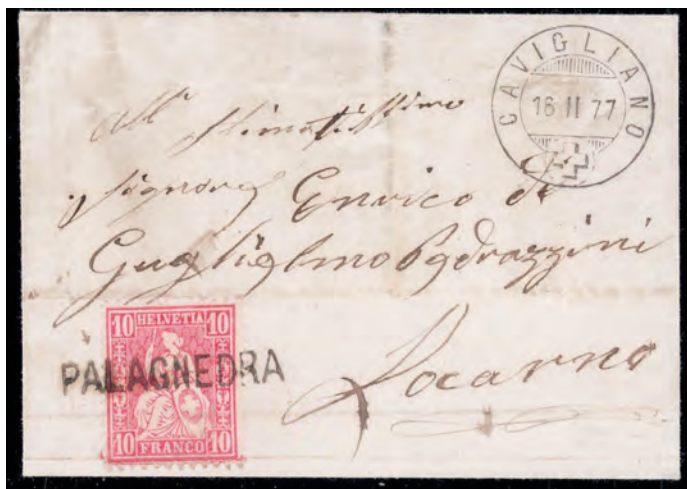 CAVIGLIANO
16 II 77
All'
Stimatissimo
Signore Enrico di
Guglielmo Pedrazzini
Locarno
10 HELVETIA 10
PALAGNEDRA
10 FRANCO 10